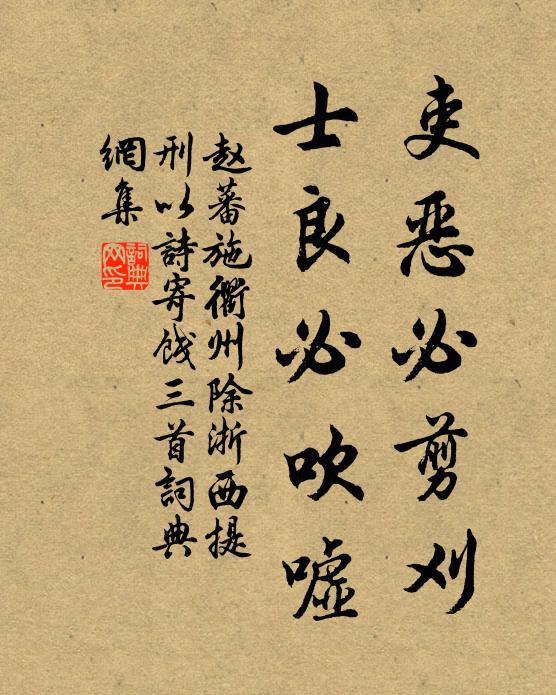 吏恶必剪刈
士良必吹噓
赵蕃施衢州除浙西提
刑以詩寄餞三首詞典
網集
詞典
网印